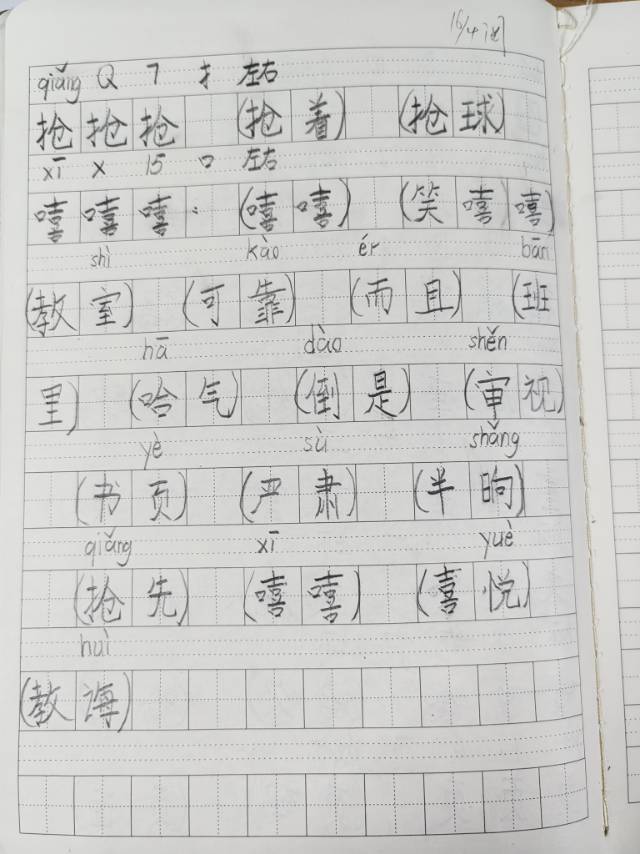 16/4
qiǎng Q 7 扌 左右
抢 抢 抢 (抢 着) (抢 球)
xī x 15 口 左右
嘻 嘻 嘻 (嘻 嘻) (笑 嘻 嘻)
shì kào ér bān
(教 室) (可 靠) (而 且) (班
hā dào shěn
里) (哈 气) (倒 是) (审 视)
yè sù shǎng
(书 页) (严 肃) (半 晌)
qiǎng xī yuè
(抢 先) (嘻 嘻) (喜 悦)
huì
(教 诲)